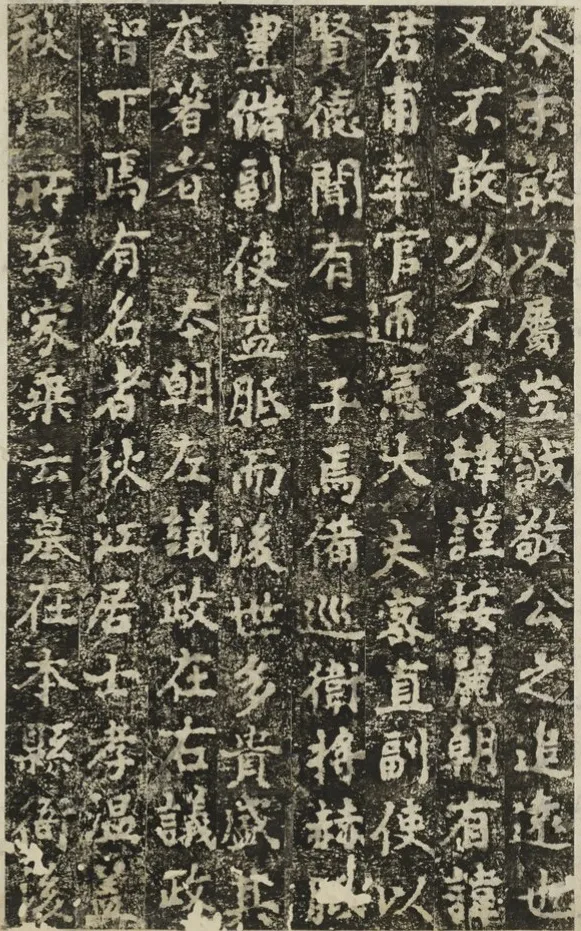 本未敢以屬豈誠敬公之追遠也
又不敢以不文辞謹按麗朝有諱
君甫卒官通憲大夫宻直副使以
賢德聞有二子焉備巡衛將赫
豊儲副使益胝而後世多貴盛其
尤著者 本朝左議政在右議政
智下焉有名者秋江居士孝温蓋
秋江所為家乘云墓在本縣衙後